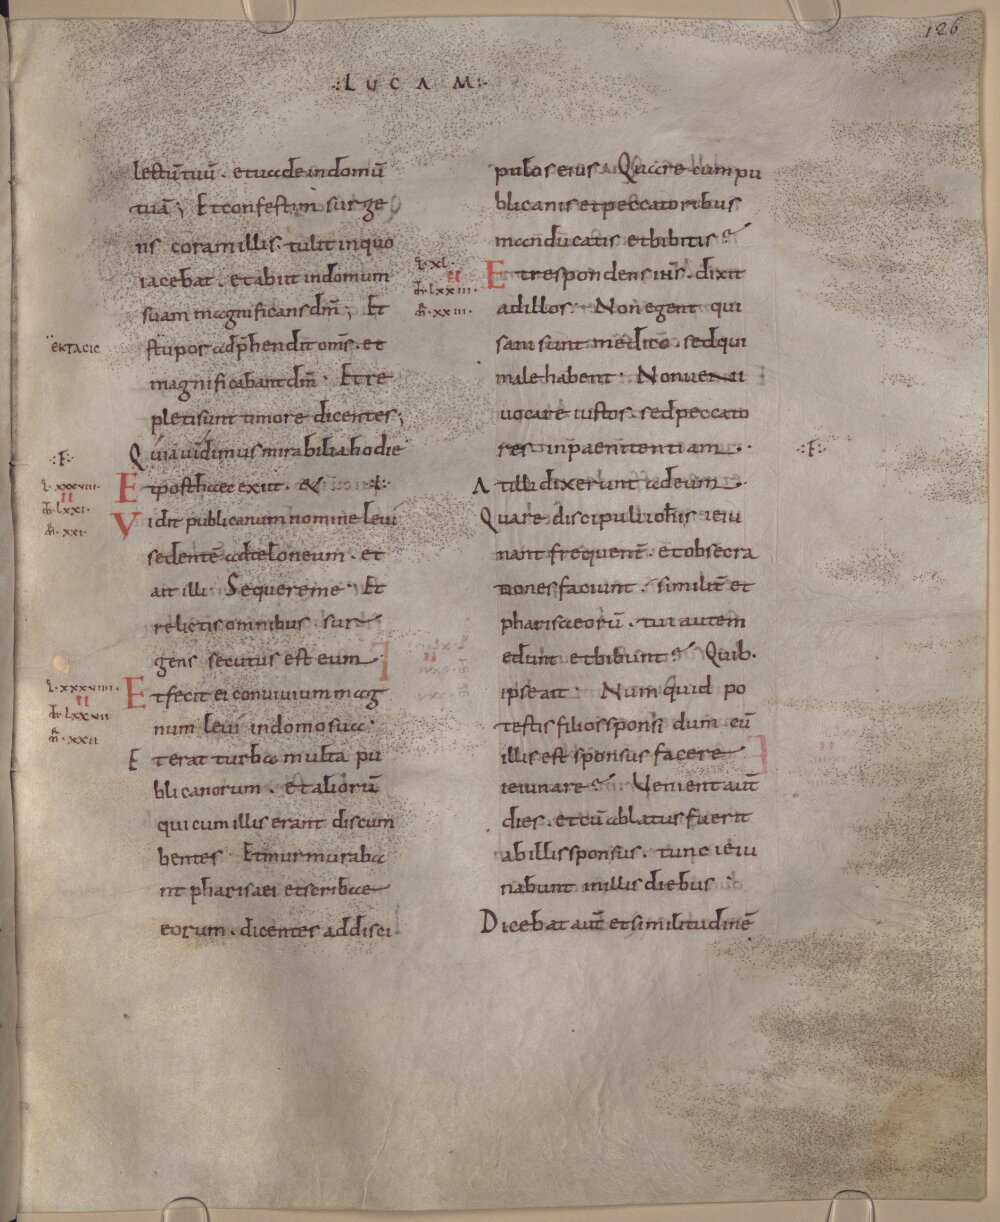 126
:LUCAM:
lectū tuū . et uade in domū
tuā ; Et confestim surge
ns coram illis . tulit in quo
iacebat . et abiit in domum
suam magnificans dm̄ ; Et
εκτασις
stupor adp̄hendit om̄s . et
magnificabant dm̄ . Et re
pleti sunt timore dicentes ;
Quia uidimus mirabilia hodie
·F·
l. xxxviii.
II
m̄. lxxi.
m̄r. xxi.
Et post haec exiit . &
Vidit publicanum nomine leui
sedentē ad teloneum . et
ait illi . Sequere me . Et
relictis omnibus . sur
gens secutus est eum
l. xxxviiii.
II
m̄. lxxii
m̄r. xxii
Et fecit ei conuiuium mag
num leui in domo sua .
Et erat turba multa pu
blicanorum . et aliorū
qui cum illis erant discum
bentes Et murmuraba
nt pharisaei et scribae
eorum . dicentes ad disci
pulos eius . Quare cum pu
blicanis et peccatoribus
manducatis et bibitis
l. xl.
II
m̄. lxxiii.
m̄r. xxiii.
Et respondens ih̄s . dixit
ad illos . Non egent qui
sani sunt medico . sed qui
male habent . Non ueni
uocare iustos . sed peccato
res . in paenitentiam .
·F·
At illi dixerunt ad eum .
Quare discipuli ioh̄is ieiu
nant frequent̄ . et obsecra
tiones faciunt . similit̄ et
pharisaeorū . tui autem
edunt et bibunt Quib.
ipse ait . Numquid po
testis filios sponsi dum cū
illis est sponsus facere
ieiunare Uenient aut̄
dies . et cū ablatus fuerit
ab illis sponsus . tunc ieiu
nabunt in illis diebus .
Dicebat aut̄ et similitudinē